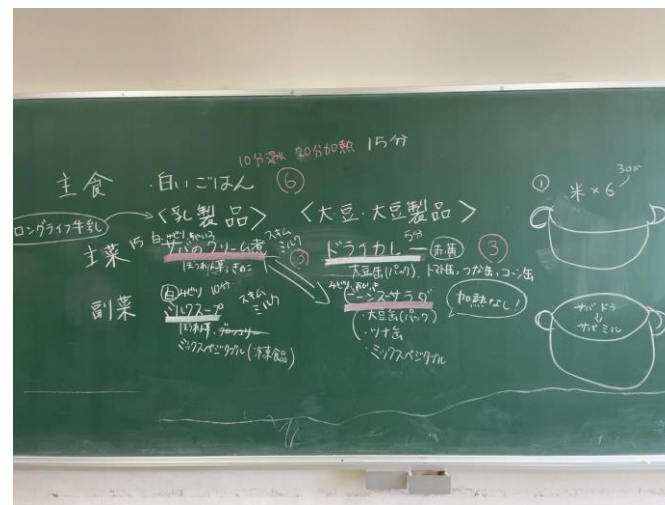 10分浸水 20分加熱 15分
主食 ・白いごはん ⑥
ロングライフ牛乳
<乳製品> <大豆・大豆製品>
主菜 15 サバのクリーム煮 スキムミルク ③
ほうれん草、きのこ
ドライカレー 5分 ③
大豆缶(パック)、トマト缶、ツナ缶、コーン缶
副菜 ミルクスープ 10分 スキムミルク
ほうれん草、ブロッコリー
ミックスベジタブル(冷凍食品)
ビーンズサラダ 加熱なし!
・大豆缶(パック)
・ツナ缶
・ミックスベジタブル
① 米×6
サバ ドラ
↓
サバ ミル